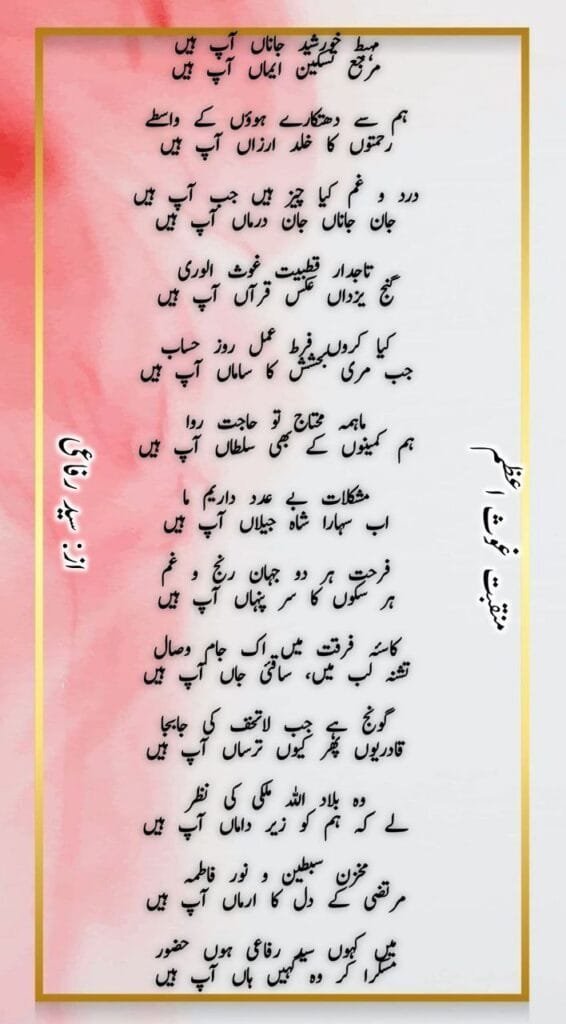 منقبت غوث اعظم
مہبط خورشید جاناں آپ ہیں
مرجع تسکین ایماں آپ ہیں
ہم سے دھتکارے ہوؤں کے واسطے
رحمتوں کا خلد ارزاں آپ ہیں
درد و غم کیا چیز ہیں جب آپ ہیں
جان جاناں جان درماں آپ ہیں
تاجدار قطبیت غوث الوری
گنج یزداں عکس قرآں آپ ہیں
کیا کروں فرط عمل روز حساب
جب مری بخشش کا ساماں آپ ہیں
ماہمہ محتاج تو حاجت روا
ہم کمینوں کے بھی سلطاں آپ ہیں
مشکلات بے عدد داریم ما
اب سہارا شاہ جیلاں آپ ہیں
فرحت ہر دو جہان رنج و غم
ہر سکوں کا سر پنہاں آپ ہیں
کاسئہ فرقت میں اک جام وصال
تشنہ لب میں، ساقئ جاں آپ ہیں
گونج ہے جب لاتخف کی جابجا
قادریوں پھر کیوں ترساں آپ ہیں
وہ بلاد اللہ ملکی کی نظر
لے کہ ہم کو زیر داماں آپ ہیں
مخزن سبطین و نور فاطمہ
مرتضی کے دل کا ارماں آپ ہیں
میں کہوں سید رفاعی ہوں حضور
مسکرا کر وہ کہیں ہاں آپ ہیں
از: سید رفاعی